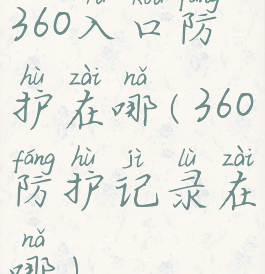 rù kǒu fáng
360入口防
hù zài nǎ
护在哪(360
fáng hù jì lù zài
防护记录在
nǎ
哪)